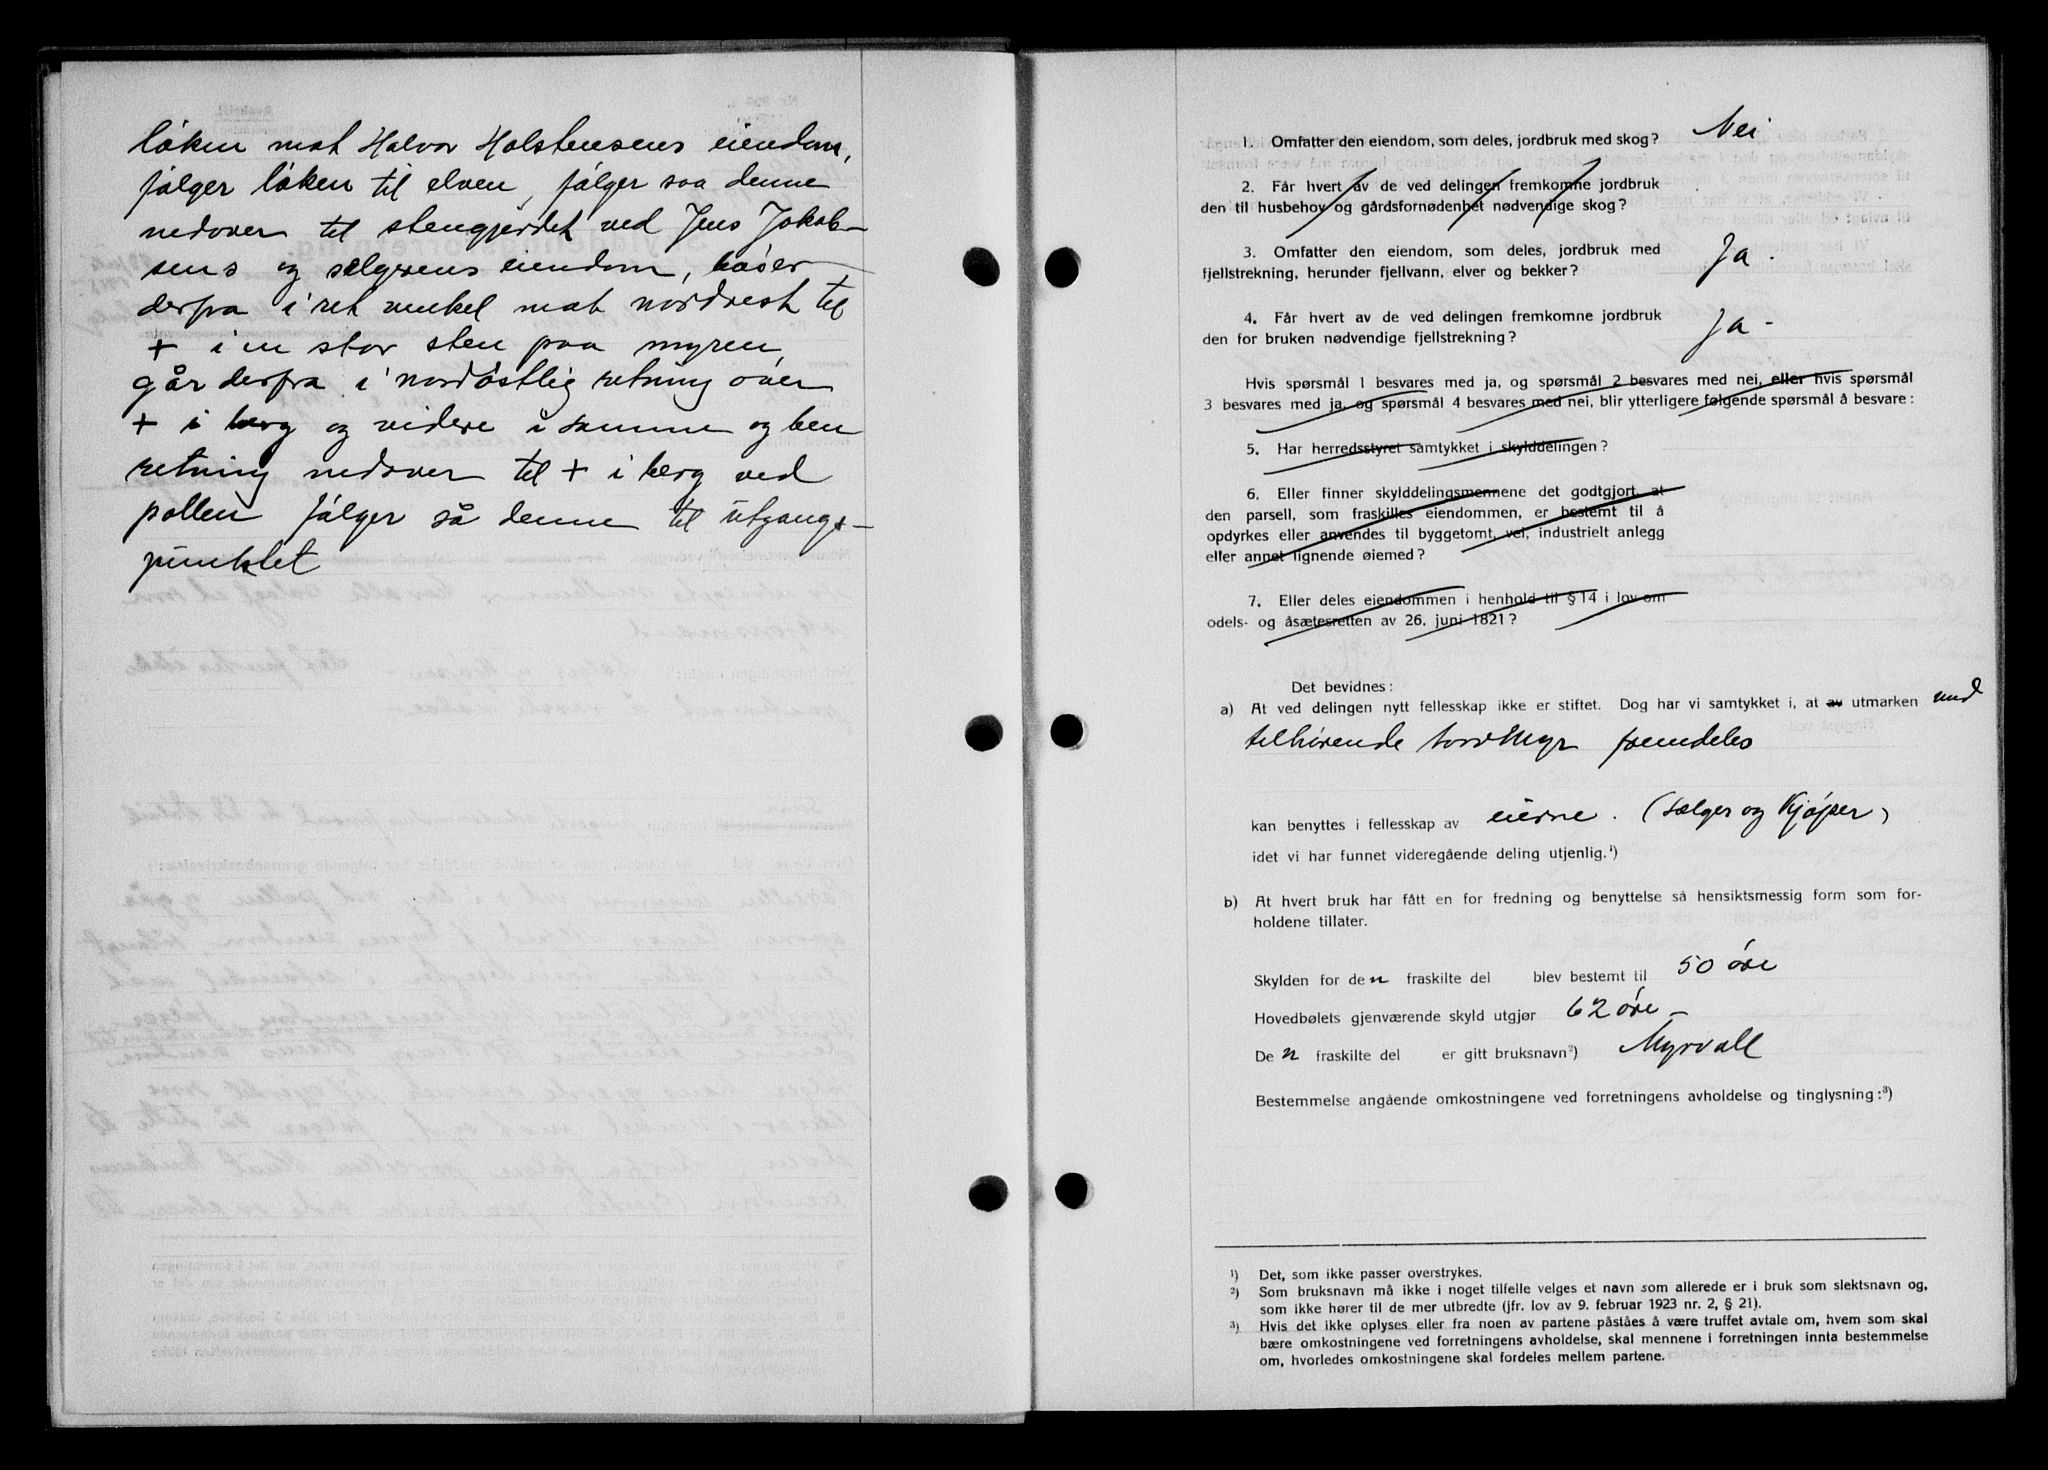 løken mot Halvor Holstensens eiendom,
følger løken til elven, følger saa denne
nedover til stengjerdet ved Jens Jakob-
sens og selgerens eiendom, bøier
derfra i ret vinkel mot nordvest til
+ i en stor sten paa myren,
går derfra i nordøstlig retning over
+ i berg og videre i samme og ben
retning nedover til + i berg ved
pollen følger så denne til utgangs-
punktet
1. Omfatter den eiendom, som deles, jordbruk med skog? Nei
2. Får hvert av de ved delingen fremkomne jordbruk
den til husbehov og gårdsfornødenhet nødvendige skog?
3. Omfatter den eiendom, som deles, jordbruk med
fjellstrekning, herunder fjellvann, elver og bekker? Ja.
4. Får hvert av de ved delingen fremkomne jordbruk
den for bruken nødvendige fjellstrekning? Ja-
Hvis spørsmål 1 besvares med ja, og spørsmål 2 besvares med nei, eller hvis spørsmål
3 besvares med ja, og spørsmål 4 besvares med nei, blir ytterligere følgende spørsmål å besvare:
5. Har herredsstyret samtykket i skylddelingen?
6. Eller finner skylddelingsmennene det godtgjort, at
den parsell, som fraskilles eiendommen, er bestemt til å
opdyrkes eller anvendes til byggetomt, vei, industrielt anlegg
eller annet lignende øiemed?
7. Eller deles eiendommen i henhold til § 14 i lov om
odels- og åsætesretten av 26. juni 1821?
Det bevidnes:
a) At ved delingen nytt fellesskap ikke er stiftet. Dog har vi samtykket i, at av utmarken med
tilhørende torvmyr fremdeles
kan benyttes i fellesskap av eierne. (sælger og Kjøper)
idet vi har funnet videregående deling utjenlig.¹)
b) At hvert bruk har fått en for fredning og benyttelse så hensiktsmessig form som for-
holdene tillater.
Skylden for den fraskilte del blev bestemt til 50 øre
Hovedbølets gjenværende skyld utgjør 62 øre -
Den fraskilte del er gitt bruksnavn²) Myrvoll
Bestemmelse angående omkostningene ved forretningens avholdelse og tinglysning:³)
¹) Det, som ikke passer overstrykes.
²) Som bruksnavn må ikke i noget tilfelle velges et navn som allerede er i bruk som slektsnavn og,
som ikke hører til de mer utbredte (jfr. lov av 9. februar 1923 nr. 2, § 21).
³) Hvis det ikke oplyses eller fra noen av partene påståes å være truffet avtale om, hvem som skal
bære omkostningene ved forretningens avholdelse, skal mennene i forretningen innta bestemmelse
om, hvorledes omkostningene skal fordeles mellem partene.